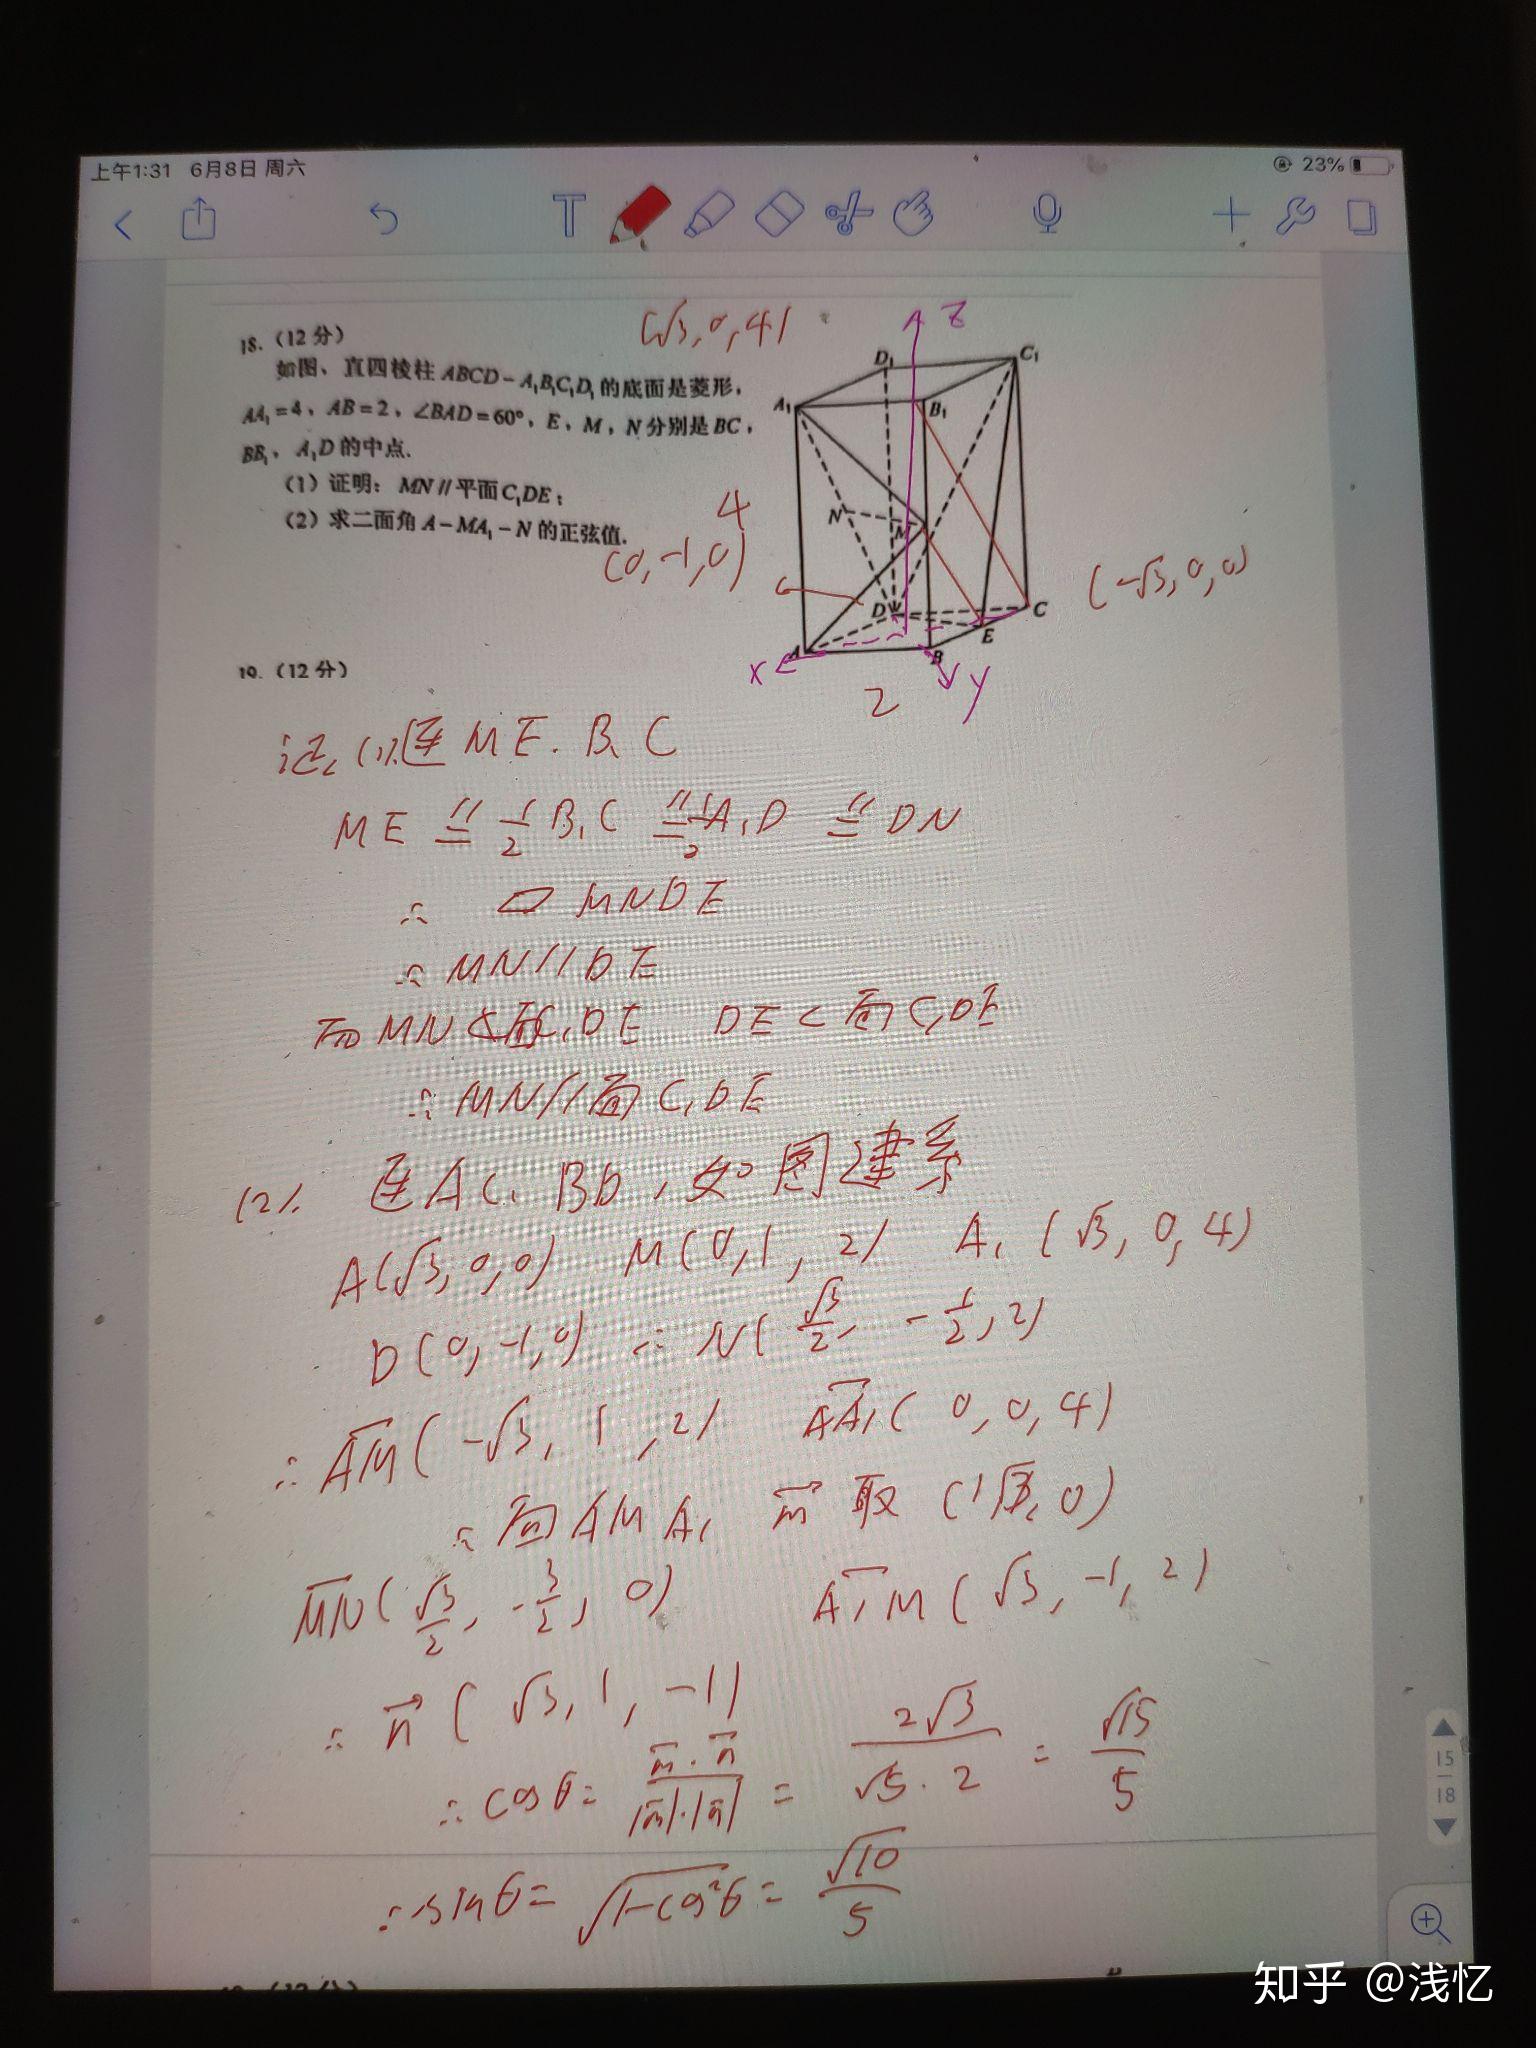 上午1:31 6月8日 周六
23%
T
18.（12分）
如图，直四棱柱ABCD-A₁B₁C₁D₁的底面是菱形，
AA₁=4，AB=2，∠BAD=60°，E，M，N分别是BC，
BB₁，A₁D的中点.
（1）证明：MN∥平面C₁DE；
（2）求二面角A-MA₁-N的正弦值.
(√3,0,4)
Z
D₁
C₁
A₁
B₁
4
N
M
(0,-1,0)
(-√3,0,0)
D
C
E
A
B
X
Y
2
19.（12分）
证：(1).连ME.B₁C
ME ∥= 1/2 B₁C ∥= 1/2 A₁D ∥= DN
∴ ▱ MNDE
∴ MN//DE
而MN⊄面C₁DE DE⊂面C₁DE
∴ MN//面C₁DE
(2). 连AC、BD，如图建系
A(√3,0,0) M(0,1,2) A₁(√3,0,4)
D(0,-1,0) ∴ N(√3/2,-1/2,2)
∴ AM(-√3,1,2) AA₁(0,0,4)
∴ 面AMA₁ m 取(1,√3,0)
MN(√3/2,-3/2,0) A₁M(√3,-1,2)
∴ n(√3,1,-1)
∴ cosθ= m·n/|m|·|n| = 2√3/√5·2 = √15/5
∴ sinθ= √1-cos²θ = √10/5
15
18
知乎 @浅忆